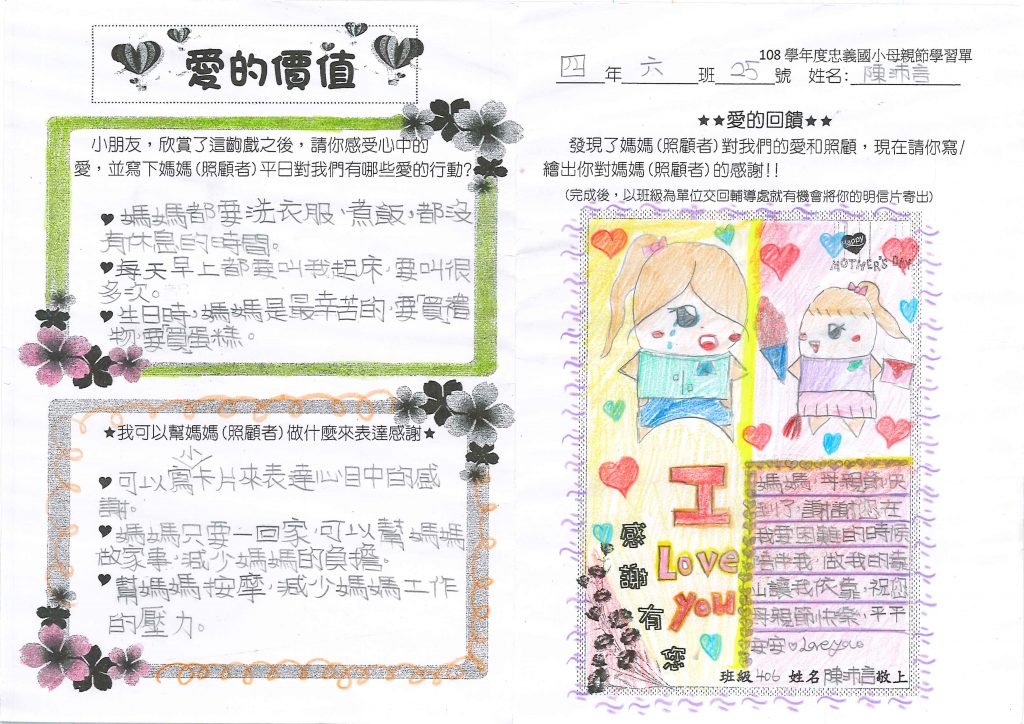 愛的價值
小朋友，欣賞了這齣戲之後，請你感受心中的
愛，並寫下媽媽(照顧者)平日對我們有哪些愛的行動?
媽媽都要洗衣服、煮飯，都沒
有休息的時間。
每天早上都要叫我起床，要叫很
多次。
生日時，媽媽是最辛苦的，要買禮
物，要買蛋糕。
★我可以幫媽媽(照顧者)做什麼來表達感謝★
可以寫小卡片來表達心目中的感
謝。
媽媽只要一回家，可以幫媽媽
做家事，減少媽媽的負擔。
幫媽媽按摩，減少媽媽工作
的壓力。
108 學年度忠義國小母親節學習單
四年六班25號 姓名：陳沛言
★★愛的回饋★★
發現了媽媽(照顧者)對我們的愛和照顧，現在請你寫/
繪出你對媽媽(照顧者)的感謝!!
(完成後，以班級為單位交回輔導處就有機會將你的明信片寄出)
Happy
MOTHER'S DAY
I
Love
you
感謝有您
媽媽，母親節快
到了，謝謝您在
我要困難的時候
陪伴我，做我的靠
山讓我依靠，祝您
母親節快樂，平平
安安♡Love you
班級 406 姓名 陳沛言 敬上